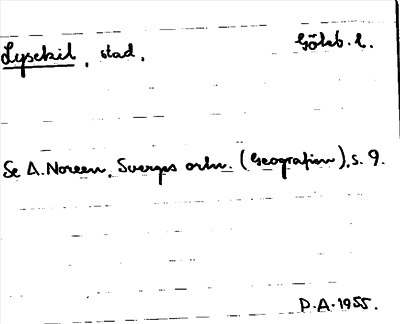 Lysekil, stad. Göteb. l.
Se A. Noreen, Sveriges ortn. (Geografien), s. 9.
P.A. 1955.